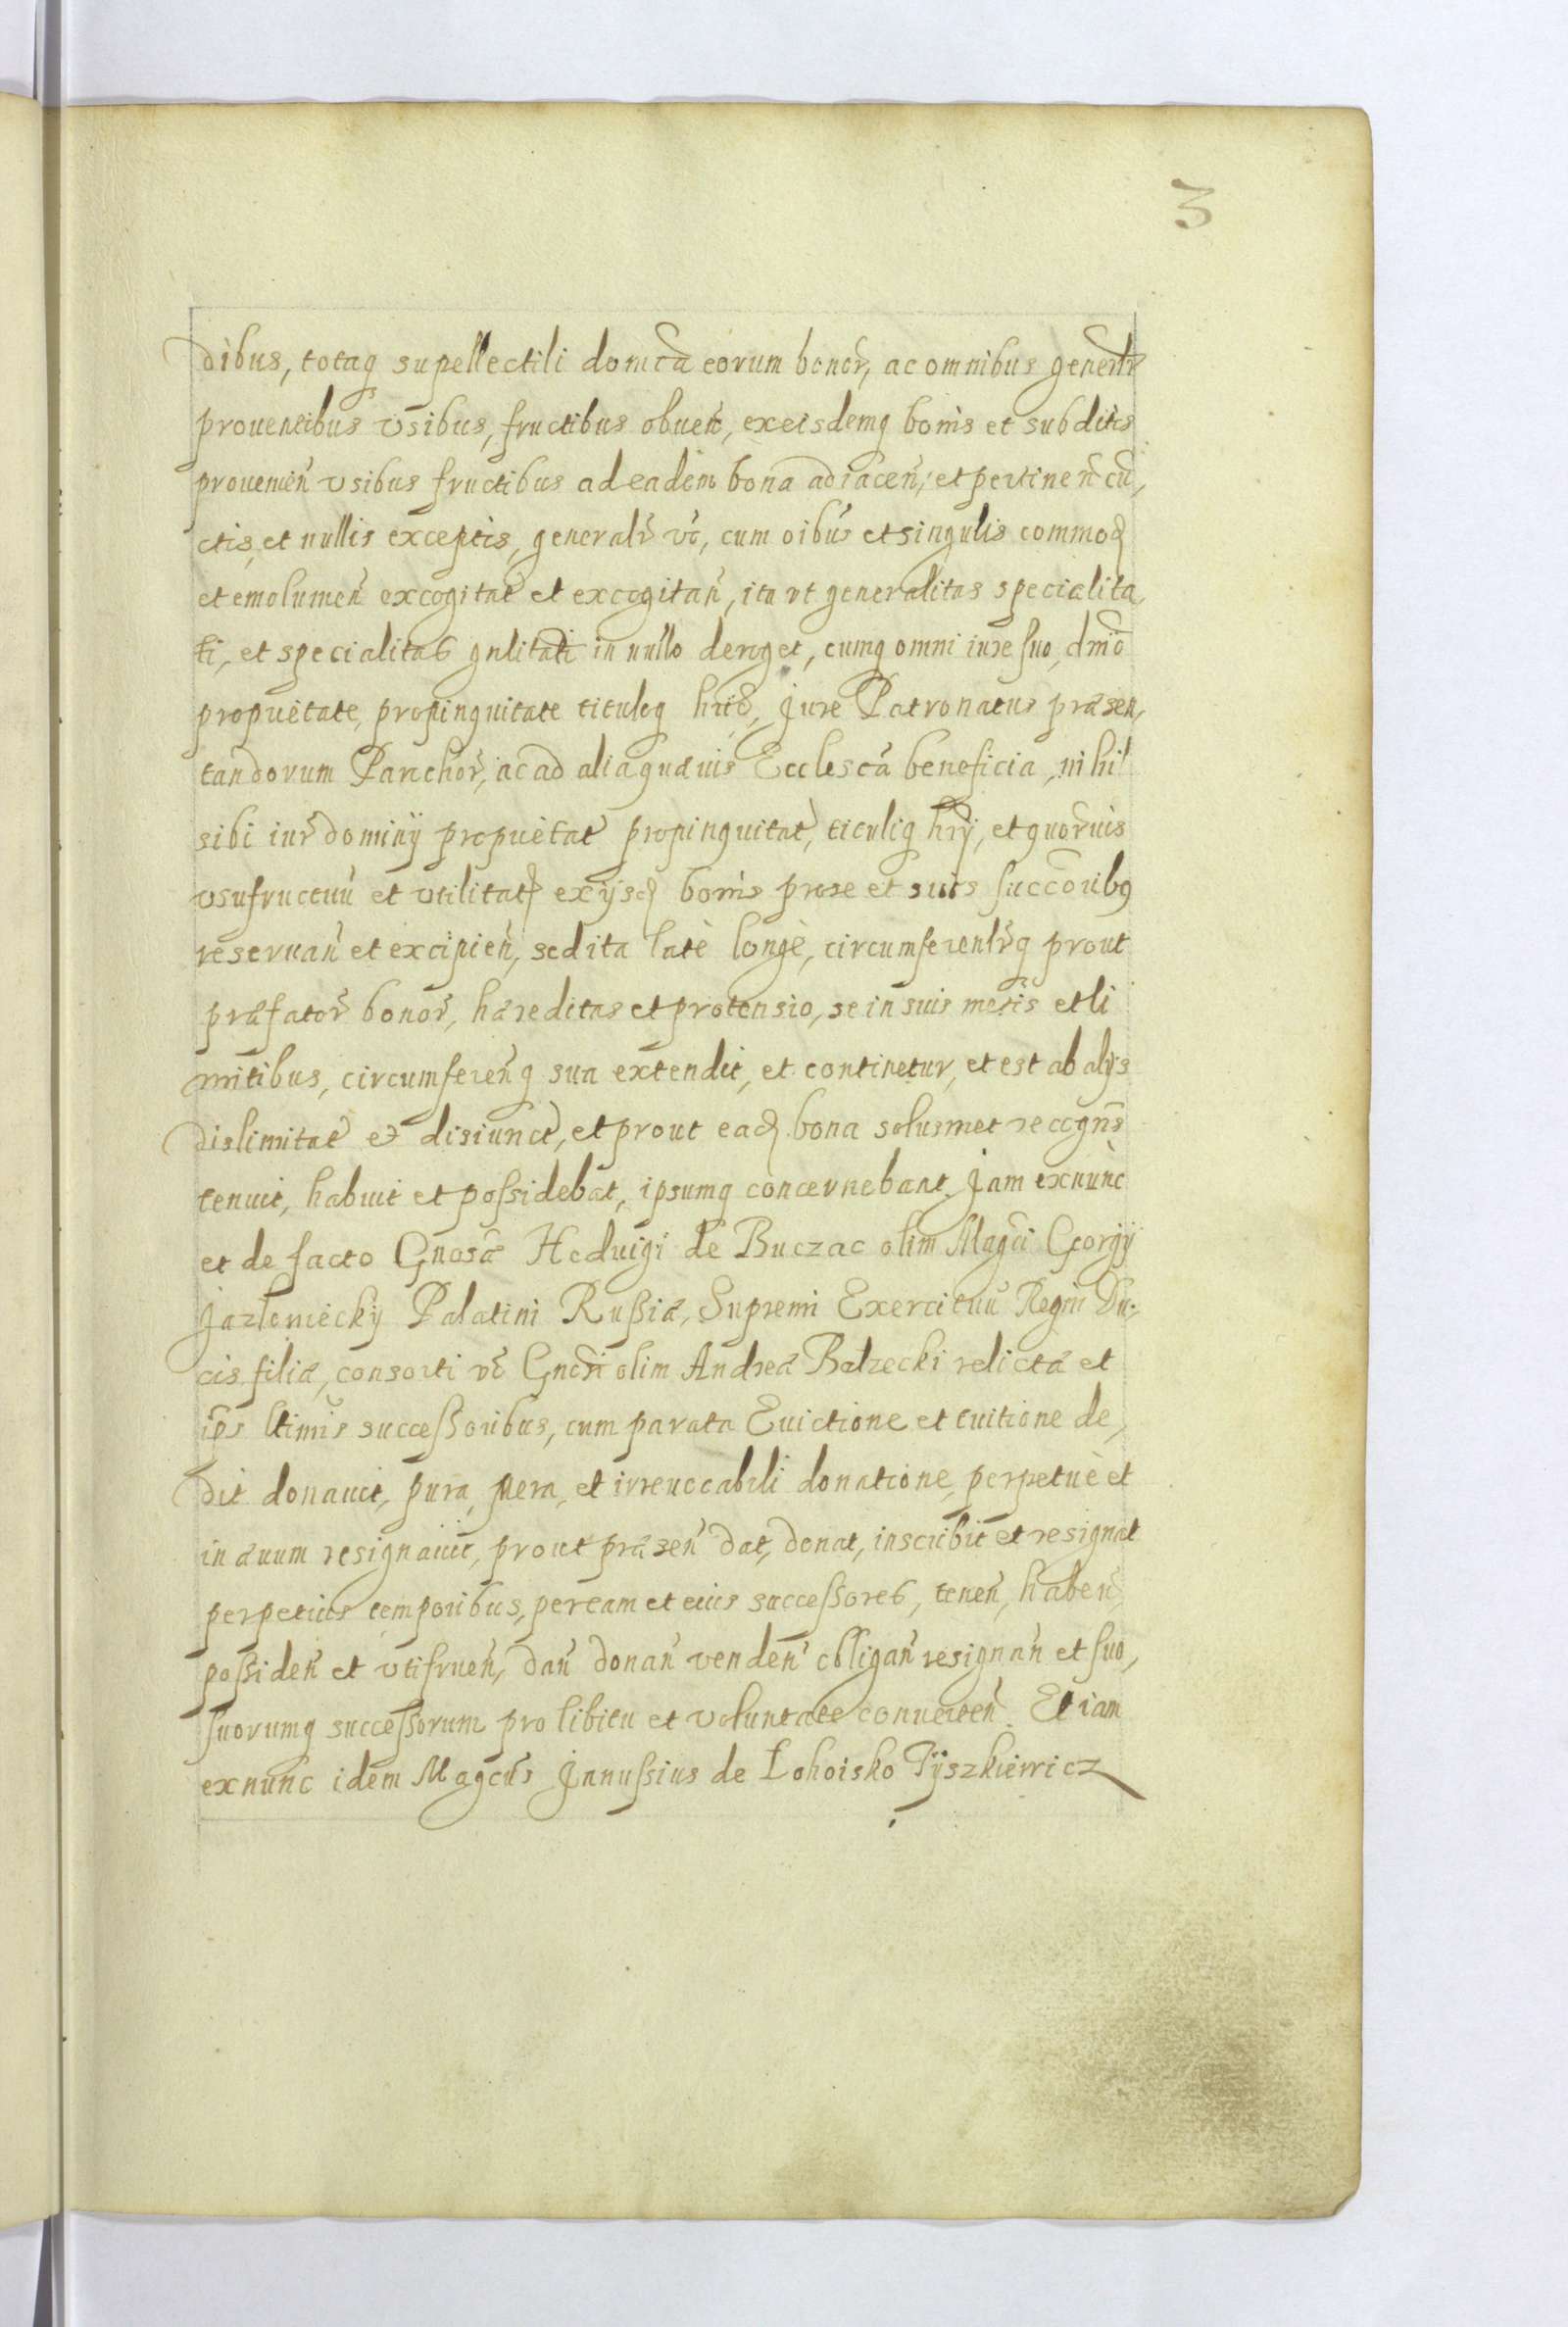 3
dibus, totaq supellectili domcã eorum bonor̃, ac omnibus generalr̃
prouentibus vsibus, fructibus obuen̄, exeisdemq bonis et subditis
prouenien̄ vsibus fructibus ad eadem bona adiacen̄, et pertinen̄ cũ,
ctis, et nullis exceptis, generalr̃ vō, cum oibus et singulis commod
et emolumen̄ excogitat̄ et excogitan̄, ita vt generalitas specialita,
ti, et specialitas gnlitati in nullo deroget, cumq omni iure suo, dmīo
proprietate, propinquitate tituloq hrio, Jure Patronatus præsen,
tandorum Parochor̃, ac ad alia quæuis Ecclescã beneficia, nihil
sibi iur̃ dominij proprietat̄ propinquitat̄, tituliq hrij, et quor̃uis
vsufructuũ et vtilitat exijsd bonis prose et suis succoribq
reseruan̄ et excipien̄, sed ita latè longè, circumferentr̃q prout
præfator̃ bonor̃, hæreditas et protensio, se in suis metis et li
mitibus, circumferen̄q sua extendit, et continetur, et est ab alijs
dislimitat̄ et disiunct̄, et prout ead bona solusmet recogns̄
tenuit, habuit et possidebat, ipsumq concernebant. Jam exnunc
et de facto Gnosæ Heduigi de Buczac olim Magci Georgij
Jazlowiecky Palatini Russiæ, Supremi Exercituũ Regni Du,
cis filiæ, consorti vō Gnosi olim Andreæ Balzecki relictæ et
ips̄ ltimis successoribus, cum parata Euictione et tuitione de,
dit donauit, pura, mera, et irreuocabili donatione, perpetuè et
in æuum resignauit, prout præsen̄ dat, donat, inscribit et resignat
perpetuis temporibus, per eam et eius successores, tenen̄, haben̄
possiden̄ et vtifruen̄, dan̄ donan̄ venden̄ obligan̄ resignan̄ et suo,
suorumq successorum pro libitu et voluntate conuerten̄. Et iam
exnunc idem Magcus Janussius de Łohoisko Tÿszkiewicz